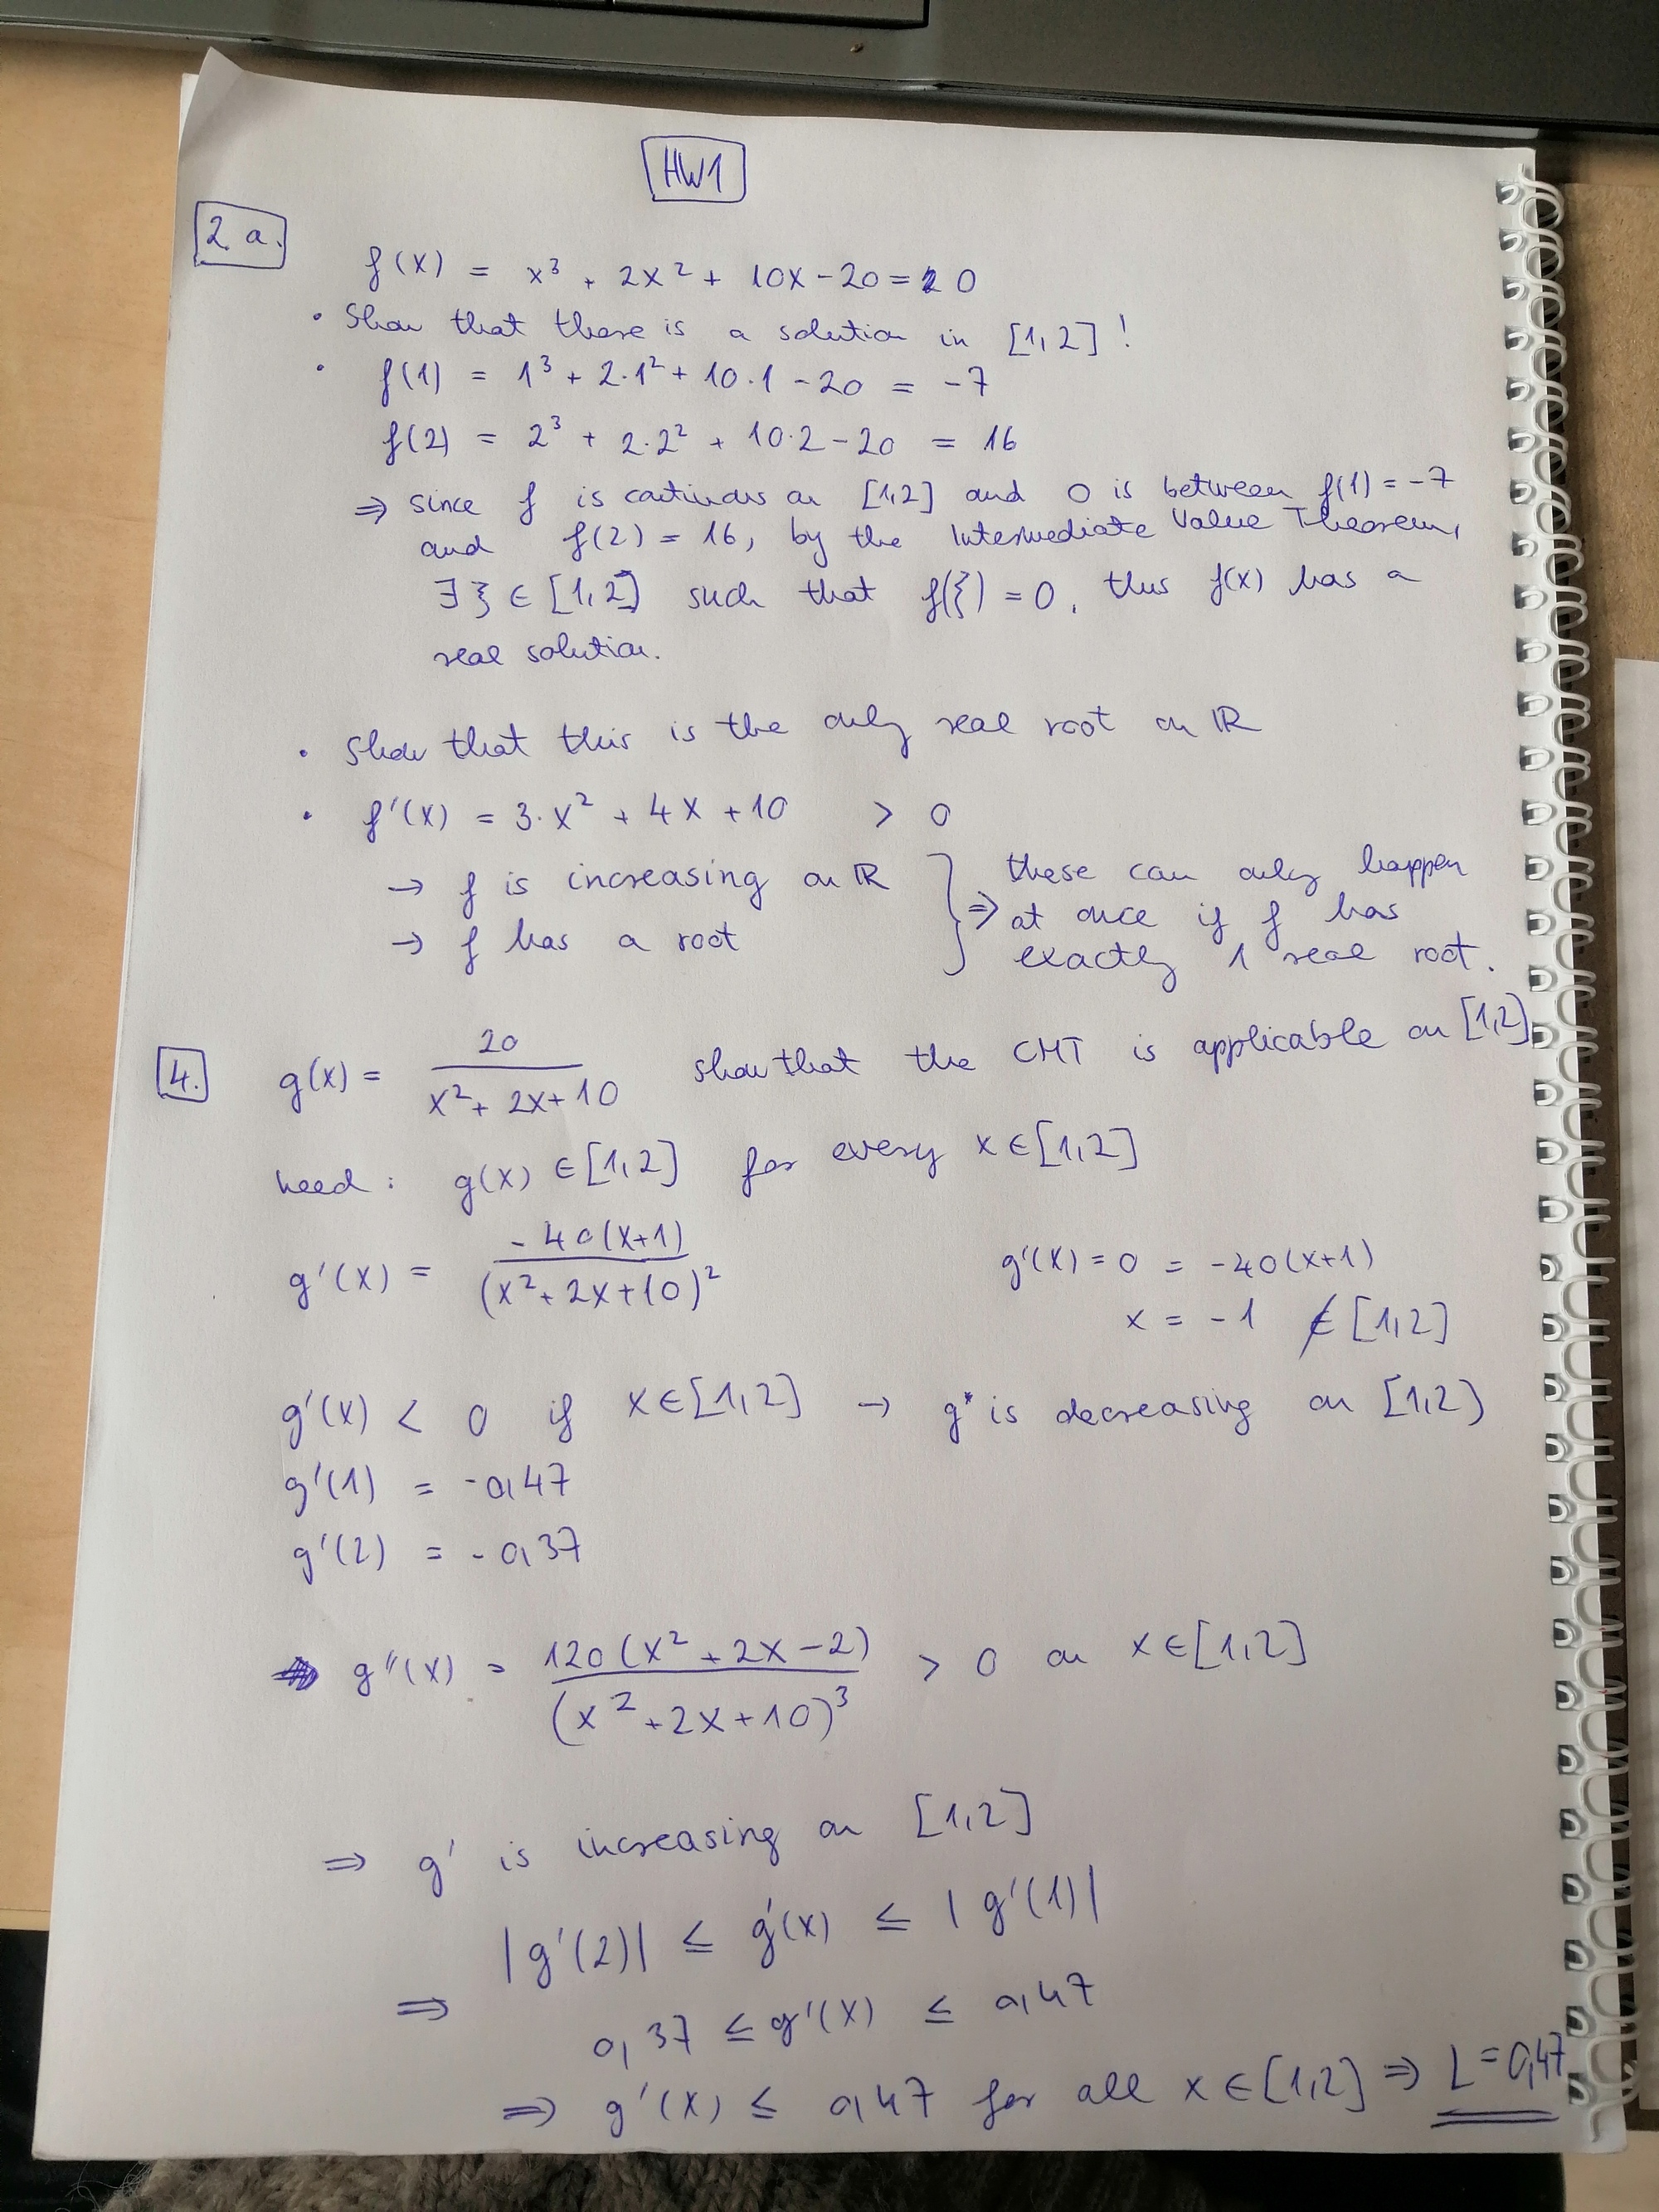 HW1
2. a.
f(x) = x³ + 2x² + 10x - 20 = 0
• Show that there is a solution in [1,2]!
• f(1) = 1³ + 2·1² + 10·1 - 20 = -7
f(2) = 2³ + 2·2² + 10·2 - 20 = 16
⇒ since f is continuous on [1,2] and 0 is between f(1) = -7
and f(2) = 16, by the Intermediate Value Theorem,
∃ ξ ∈ [1,2] such that f(ξ) = 0, thus f(x) has a
real solution.
• Show that this is the only real root on ℝ
• f'(x) = 3·x² + 4x + 10 > 0
→ f is increasing on ℝ
→ f has a root
} ⇒ these can only happen
at once if f has
exactly 1 real root.
4. g(x) = 20 / (x² + 2x + 10) show that the CMT is applicable on [1,2]
need: g(x) ∈ [1,2] for every x ∈ [1,2]
g'(x) = -40(x+1) / (x² + 2x + 10)²
g'(x) = 0 = -40(x+1)
x = -1 ∉ [1,2]
g'(x) < 0 if x ∈ [1,2] → g is decreasing on [1,2]
g'(1) = -0,47
g'(2) = -0,37
g''(x) = 120(x² + 2x - 2) / (x² + 2x + 10)³ > 0 on x ∈ [1,2]
⇒ g' is increasing on [1,2]
|g'(2)| ≤ g'(x) ≤ |g'(1)|
⇒ 0,37 ≤ g'(x) ≤ 0,47
⇒ g'(x) ≤ 0,47 for all x ∈ [1,2] ⇒ L = 0,47